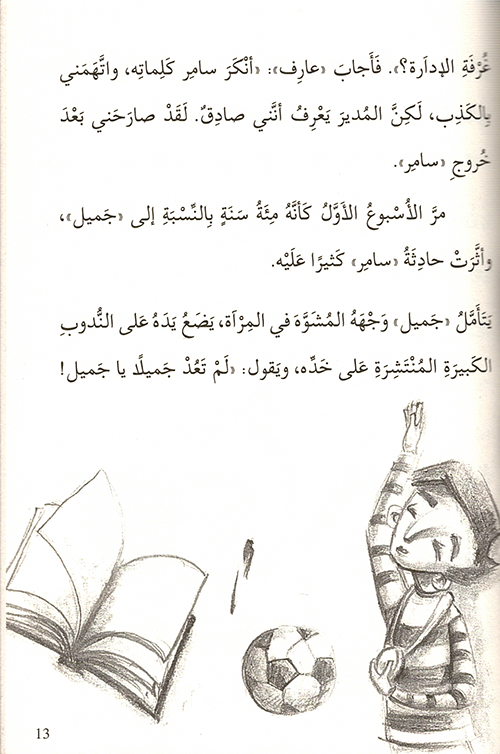 غُرْفَةِ الإدارَة؟». فَأَجابَ «عارِف»: «أنْكَرَ سامِر كَلِماتِه، واتَّهَمَني
بِالكَذِب، لَكِنَّ المُديرَ يَعْرِفُ أنَّني صادِقٌ. لَقَدْ صارَحَني بَعْدَ
خُروجِ «سامِر».
مرَّ الأُسْبوعُ الأَوَّلُ كَأنَّهُ مِئَةُ سَنَةٍ بِالنِّسْبَةِ إلى «جَميل»،
وأثَّرَتْ حادِثَةُ «سامِر» كَثيرًا عَلَيْه.
يَتَأَمَّلُ «جَميل» وَجْهَهُ المُشَوَّهَ في المِرْآة، يَضَعُ يَدَهُ عَلى النُّدوبِ
الكَبيرَةِ المُنْتَشِرَةِ عَلى خَدِّه، ويَقول: «لَمْ تَعُدْ جَميلًا يا جَميل!
13